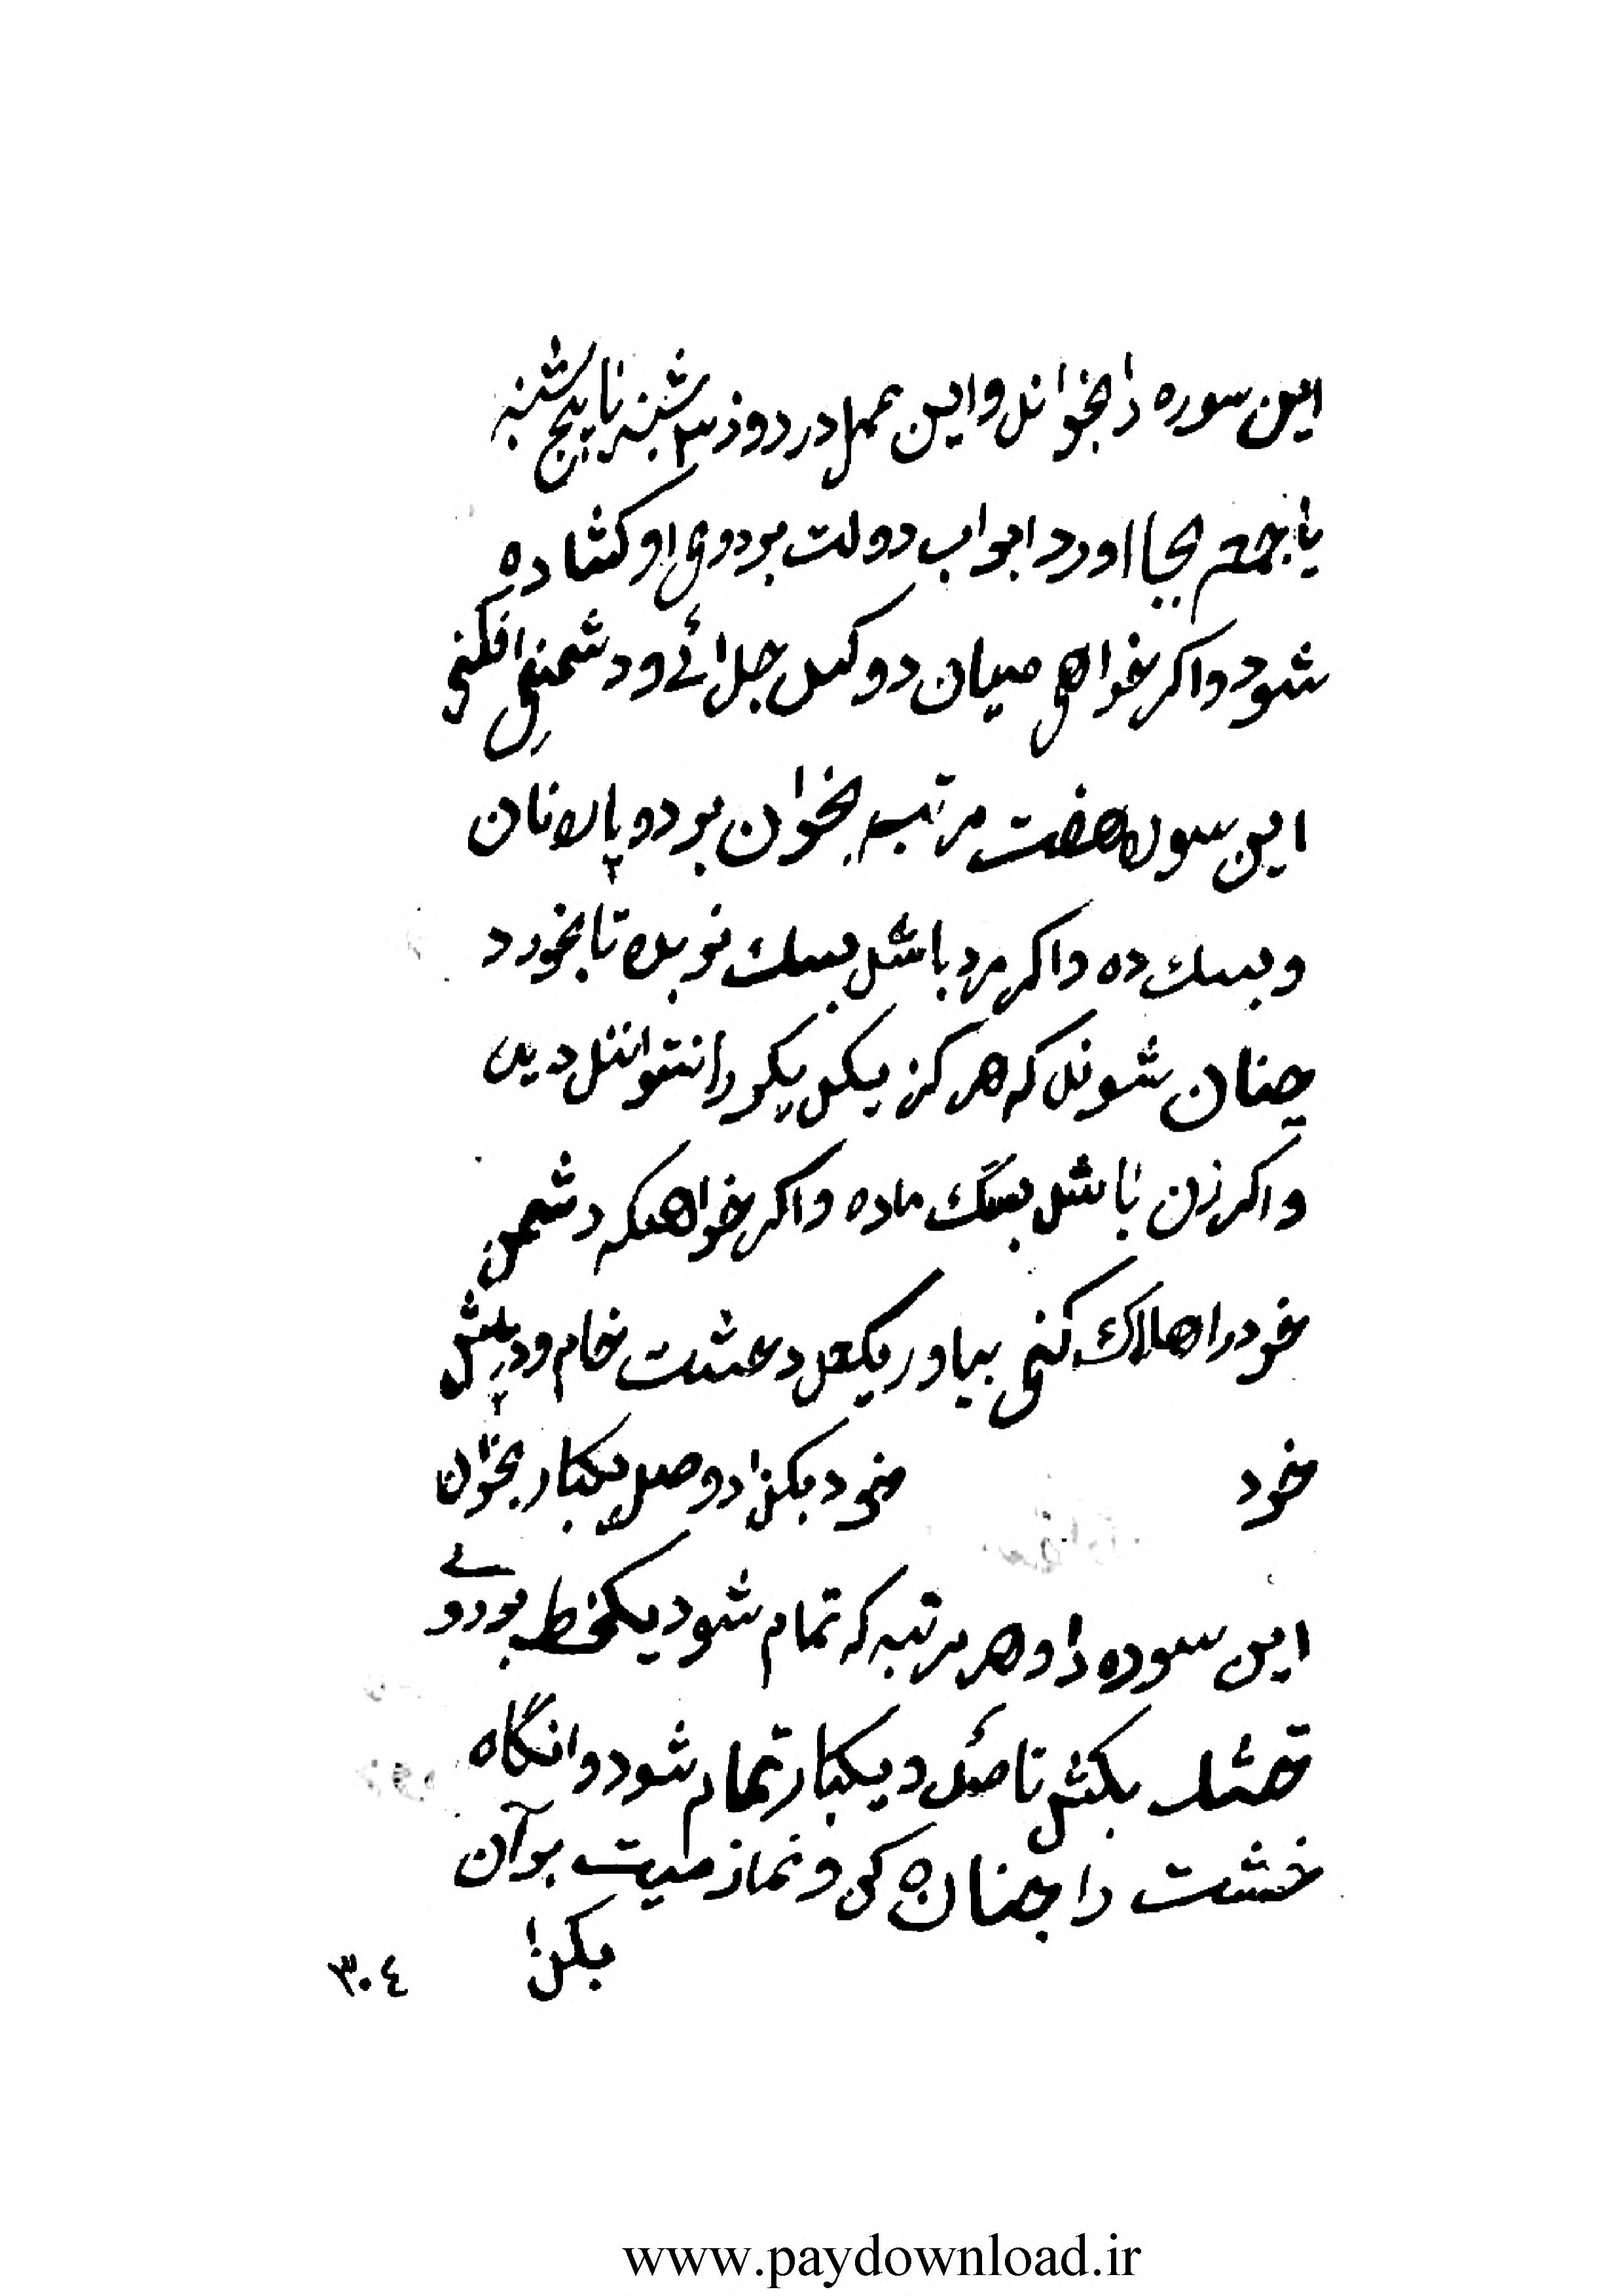 این سوره را بخواند و این عمل در روز ۳شنبه یا پنج شنبه
یا جمعه بجا اورد ابواب دولت بر روی او کشاده
شود واکر خواهی میان دو کس جدائے و دشمنی افکنی
این سوره هفت مرتبه بخوان بر دو پاره نان
و بسك ده واکر مرد باشد بسك نر بده تا بخورد
چنان شوند که هرکز یکدیکر را نتوانند دید
واکر زن باشد بسگ ماده واکر خواهیکه دشمن
خود را هلاك کنی بیاور یکعدد خشت خام و در پیش
خود خود بکذار و صد یکبار بخوان
این سوره را و هر مرتبه که تمام شود یکخط بر روے
خشت بکش تا صد و یکبار تمام شود و انگاه
خشت را جنازه کن و نماز میت بر آن
بکذار
٣٠٤
www.paydownload.ir